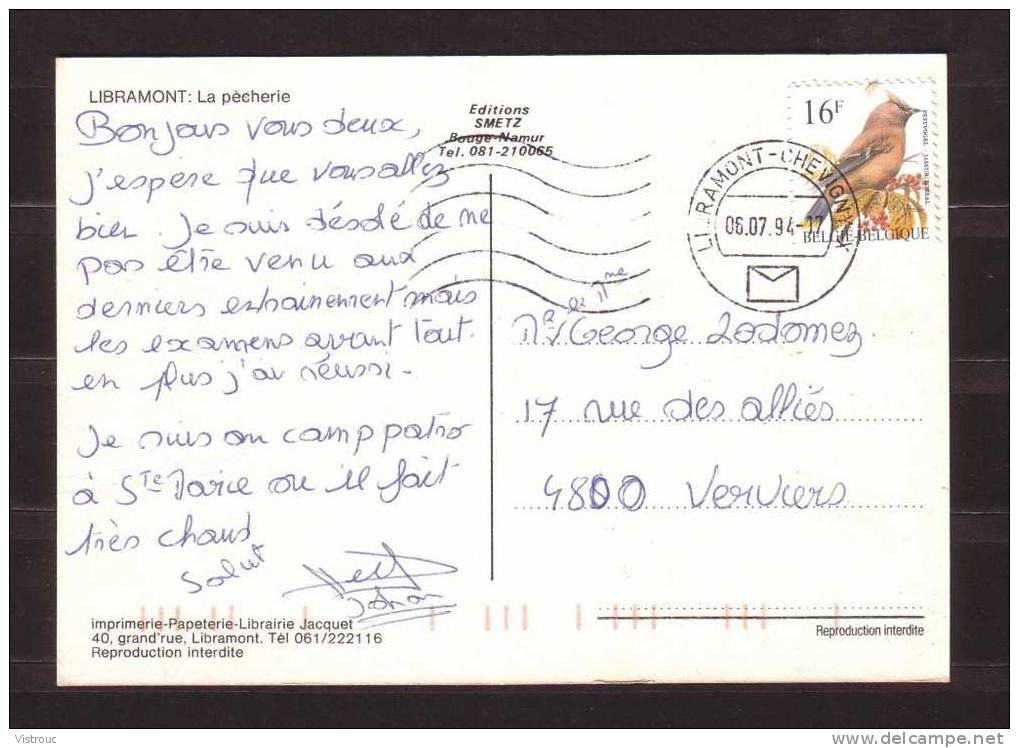 LIBRAMONT: La pècherie
Bonjours vous deux,
j'espère que vous allez
bien. Je suis désolé de ne
pas être venu aux
derniers entrainement mais
les examens avant tout.
en plus j'ai réussi.
Je suis au camp patro
à Ste Marie ou il fait
très chaud
Salut
Johan
imprimerie-Papeterie-Librairie Jacquet
40, grand'rue, Libramont. Tél 061/222116
Reproduction interdite
Editions
SMETZ
Bouge-Namur
Tel. 081-210065
16F
PESTVOGEL JASEUR BOREAL
BELGIË-BELGIQUE
LIBRAMONT-CHEVIGNY
06.07.94-17
Mr et Mme George Lodomez
17 rue des alliés
4800 Verviers
Reproduction interdite
Vistrouc
delcampe.net